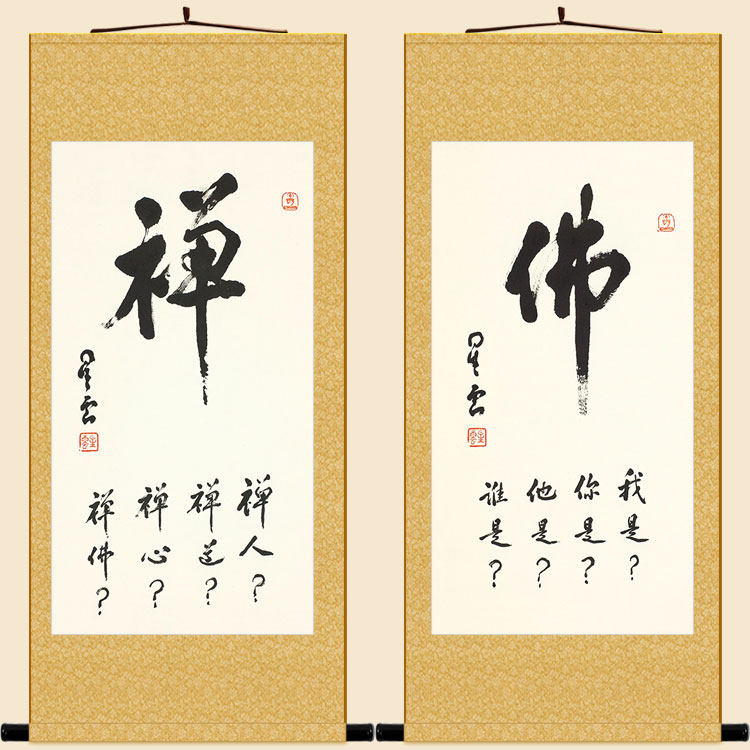 禅
星雲
禅人？
禅道？
禅心？
禅佛？
佛
星雲
我是？
你是？
他是？
谁是？